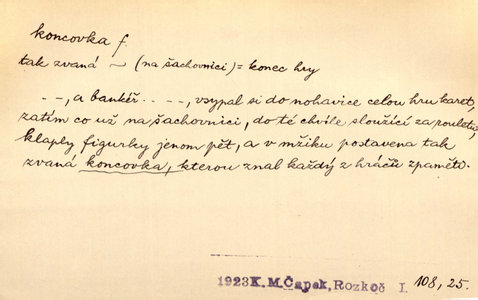 koncovka f.
tak zvaná ~ (na šachovnici) = konec hry
- -, a bankéř . . - -, vsypal si do nohavice celou hru karet,
zatím co už na šachovnici, do té chvíle sloužící za pouletu,
klaply figurky jenom pět, a v mžiku postavena tak
zvaná koncovka, kterou znal každý z hráčů zpaměti.
1923 K. M. Čapek, Rozkoč I. 108, 25.